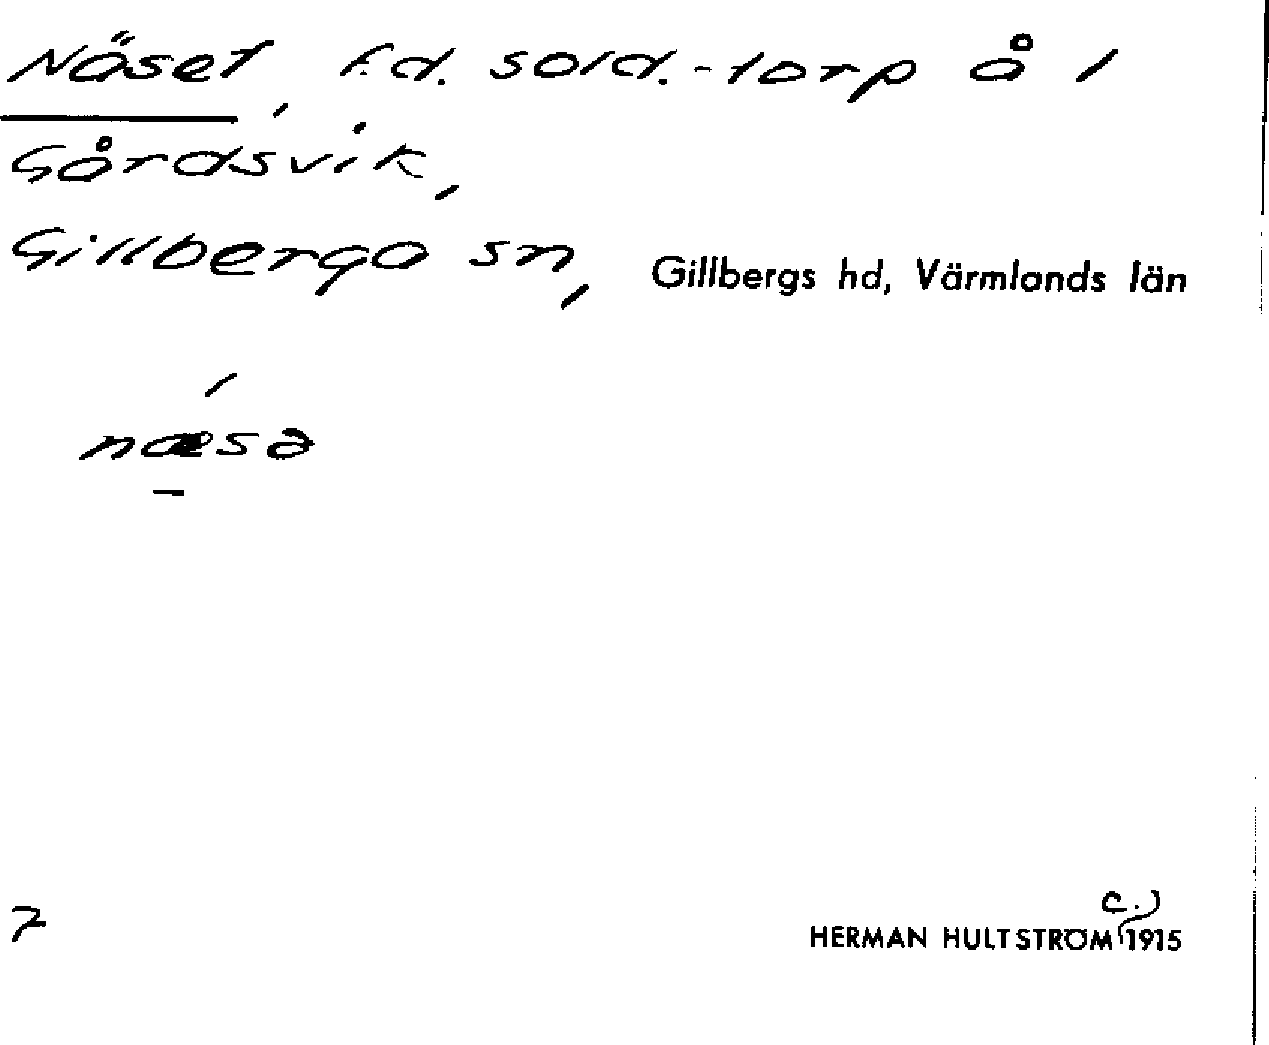 Näset, f.d. sold.-torp å 1
Gårdsvik,
Gillberga sn, Gillbergs hd, Värmlands län
næsa
7
c.)
HERMAN HULTSTRÖM 1915